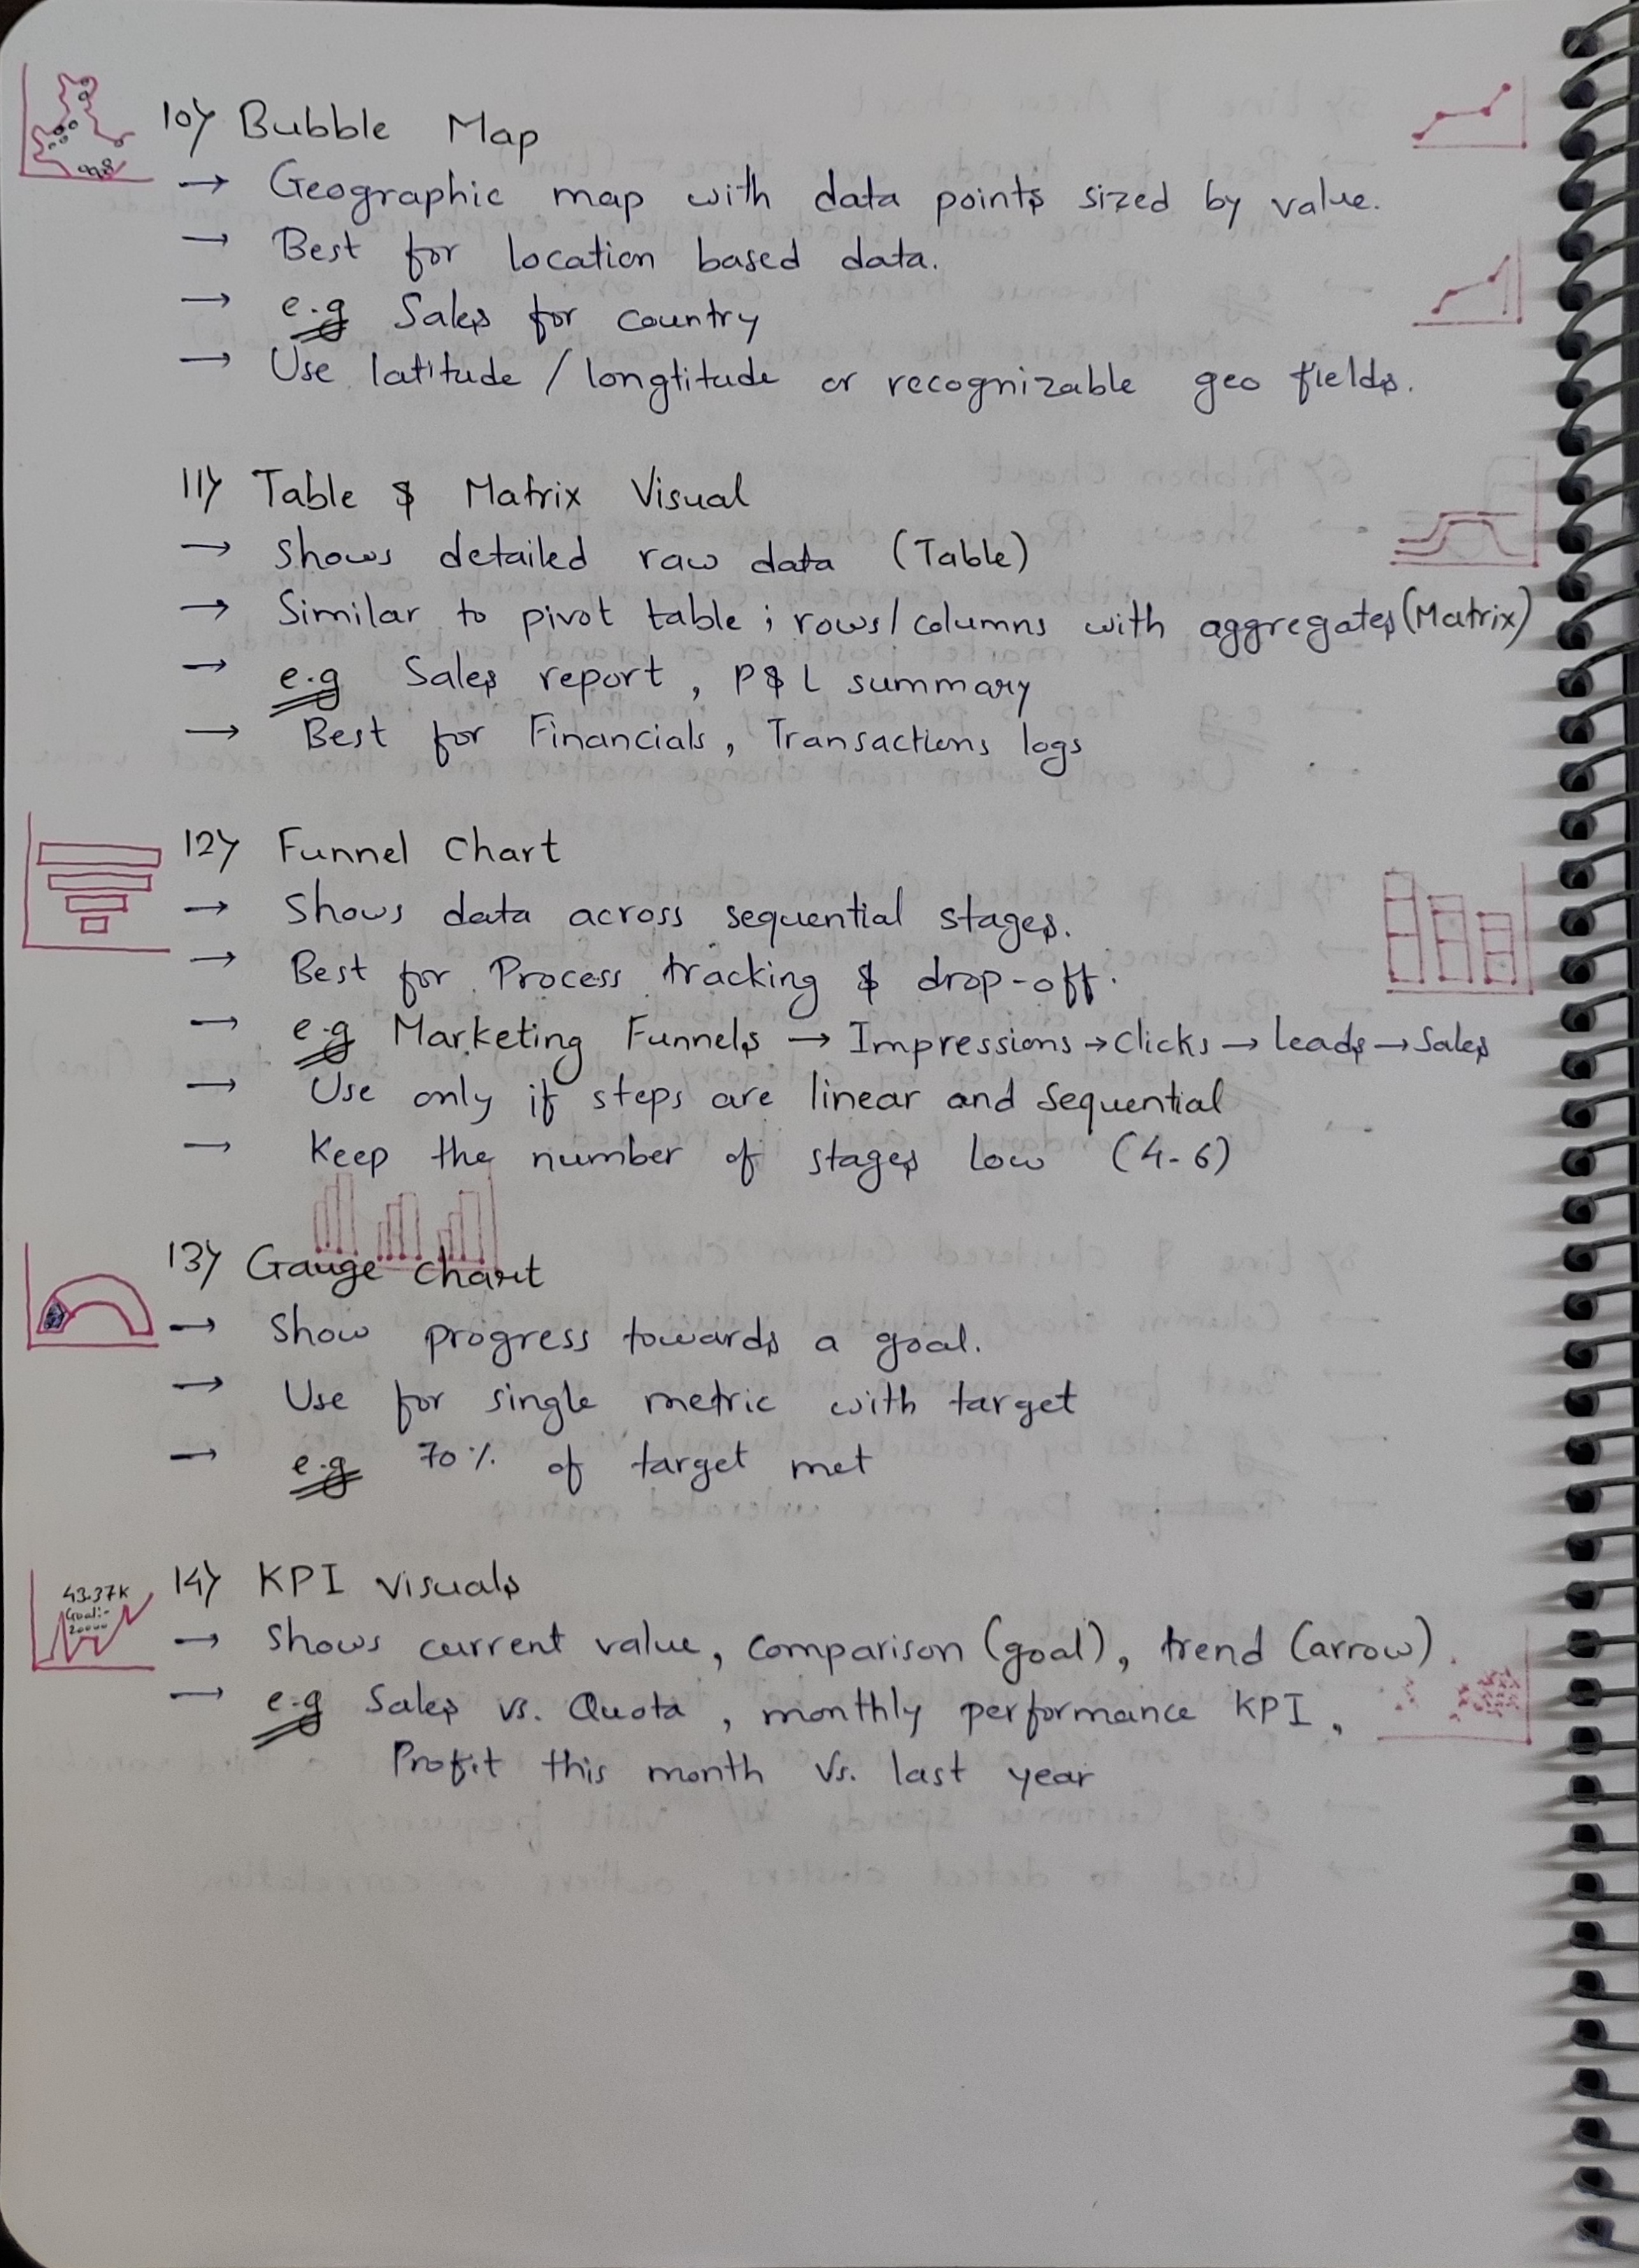 10) Bubble Map
→ Geographic map with data points sized by value.
→ Best for location based data.
→ e.g Sales for country
→ Use latitude / longtitude or recognizable geo fields.
11) Table & Matrix Visual
→ Shows detailed raw data (Table)
→ Similar to pivot table ; rows/columns with aggregates (Matrix)
→ e.g Sales report, P&L summary
→ Best for Financials, Transactions logs
12) Funnel Chart
→ Shows data across sequential stages.
→ Best for Process tracking & drop-off.
→ e.g Marketing Funnels → Impressions → Clicks → Leads → Sales
→ Use only if steps are linear and sequential
→ Keep the number of stages low (4-6)
13) Gauge chart
→ Show progress towards a goal.
→ Use for single metric with target
→ e.g 70% of target met
43.37K
Goal:-
20000
14) KPI visuals
→ Shows current value, comparison (goal), trend (arrow).
→ e.g Sales vs. Quota, monthly performance KPI,
Profit this month Vs. last year